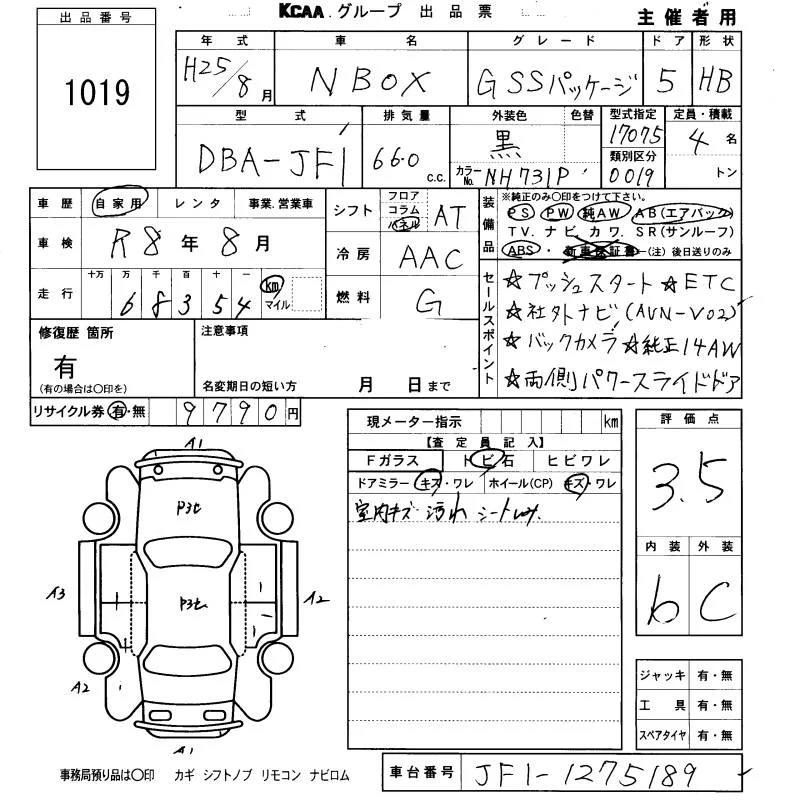 KCAA グループ 出品票
主催者用
出品番号
1019
年式 車名 グレード ドア 形状
H25/8月 N BOX G SSパッケージ 5 HB
型式 排気量 外装色 色替 型式指定 定員・積載
DBA-JF1 660 c.c. 黒 17075 4名
カラーNo. NH731P 類別区分 0019 トン
車歴 自家用 レンタ 事業.営業車
車検 R8年8月
走行 十万 万 千 百 十 一
68354 km マイル
シフト フロア コラム パネル AT
冷房 AAC
燃料 G
装備品 ※純正のみ〇印をつけて下さい。
PS PW 純AW AB(エアバック)
TV. ナビ カワ. SR(サンルーフ)
ABS・新車保証書(注)後日送りのみ
セールスポイント
☆プッシュスタート ☆ETC
☆社外ナビ(AVN-V02)
☆バックカメラ ☆純正14AW
☆両側パワースライドドア
修復歴 箇所
有
(有の場合は〇印を)
注意事項
名変期日の短い方 月 日まで
リサイクル券 有・無 9790円
現メーター指示 km
【査定員記入】
Fガラス トビ石 ヒビワレ
ドアミラー キズ・ワレ ホイール(CP) キズ・ワレ
室内キズ 汚れ
評価点
3.5
内装 外装
b C
ジャッキ 有・無
工具 有・無
スペアタイヤ 有・無
A1
P3t
A3
P3t
A2
A2
A1
事務局預り品は〇印 カギ シフトノブ リモコン ナビロム
車台番号 JF1-1275189